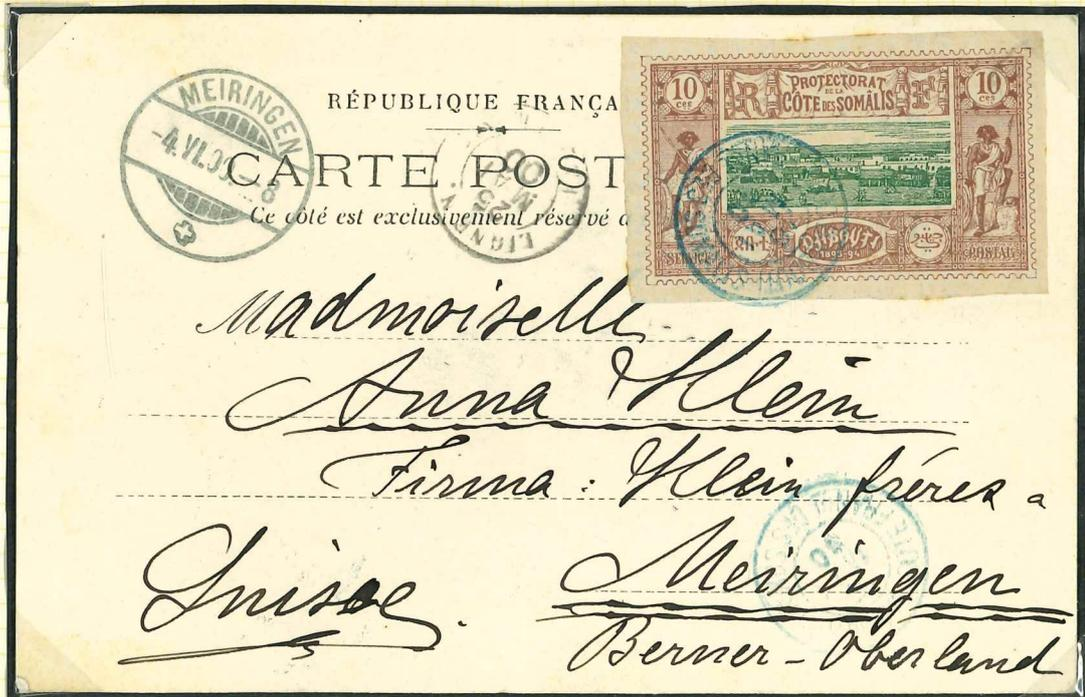 MEIRINGEN
-4.VI.00.-8
RÉPUBLIQUE FRANÇA
CARTE POST
Ce côté est exclusivement réservé
LIGNE
10 ces
10 ces
PROTECTORAT
DE LA
CÔTE DES SOMÂLIS
R F
DJIBOUTI
1893-94
POSTAL
Madmoiselle
Anna Klein
Firma : Klein fréres a
Meiringen
Suisse.
Berner-Oberland